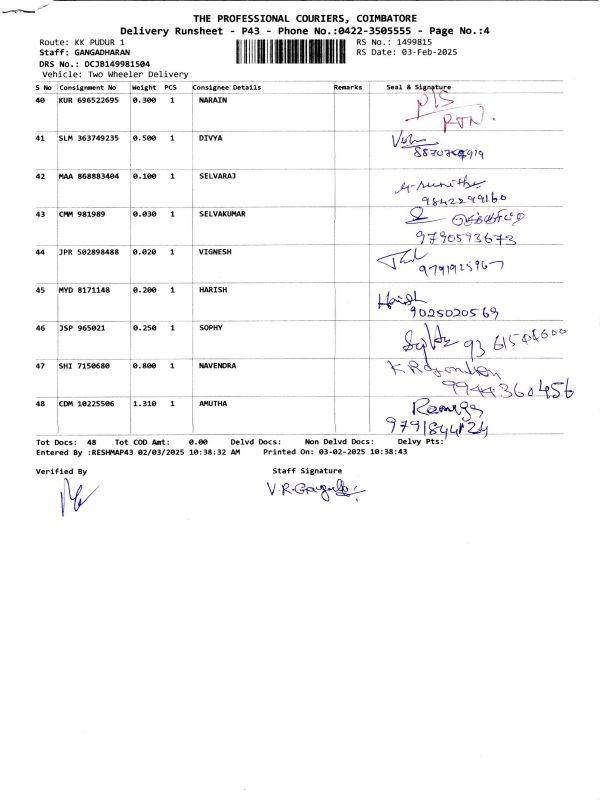 THE PROFESSIONAL COURIERS, COIMBATORE
Delivery Runsheet - P43 - Phone No.:0422-3505555 - Page No.:4
Route: KK PUDUR 1 RS No.: 1499815
Staff: GANGADHARAN RS Date: 03-Feb-2025
DRS No.: DCJB149981504
Vehicle: Two Wheeler Delivery
S No Consignment No Weight PCS Consignee Details Remarks Seal & Signature
40 KUR 696522695 0.300 1 NARAIN
RTN.
41 SLM 363749235 0.500 1 DIVYA
42 MAA 868883404 0.100 1 SELVARAJ
9842299160
43 CMM 981989 0.030 1 SELVAKUMAR
9790593673
44 JPR 502898488 0.020 1 VIGNESH
9791925967
45 MYD 8171148 0.200 1 HARISH
Harish
9025020569
46 JSP 965021 0.250 1 SOPHY
47 SHI 7150680 0.800 1 NAVENDRA
9944360456
48 CDM 10225506 1.310 1 AMUTHA
Tot Docs: 48 Tot COD Amt: 0.00 Delvd Docs: Non Delvd Docs: Delvy Pts:
Entered By :RESHMAP43 02/03/2025 10:38:32 AM Printed On: 03-02-2025 10:38:43
Verified By Staff Signature